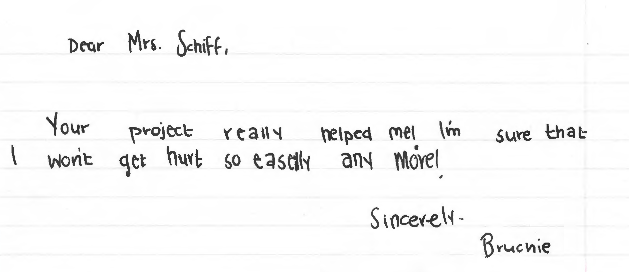 Dear Mrs. Schiff,
Your project really helped me! I'm sure that
I won't get hurt so easily any More!
Sincerely-
Bruchie